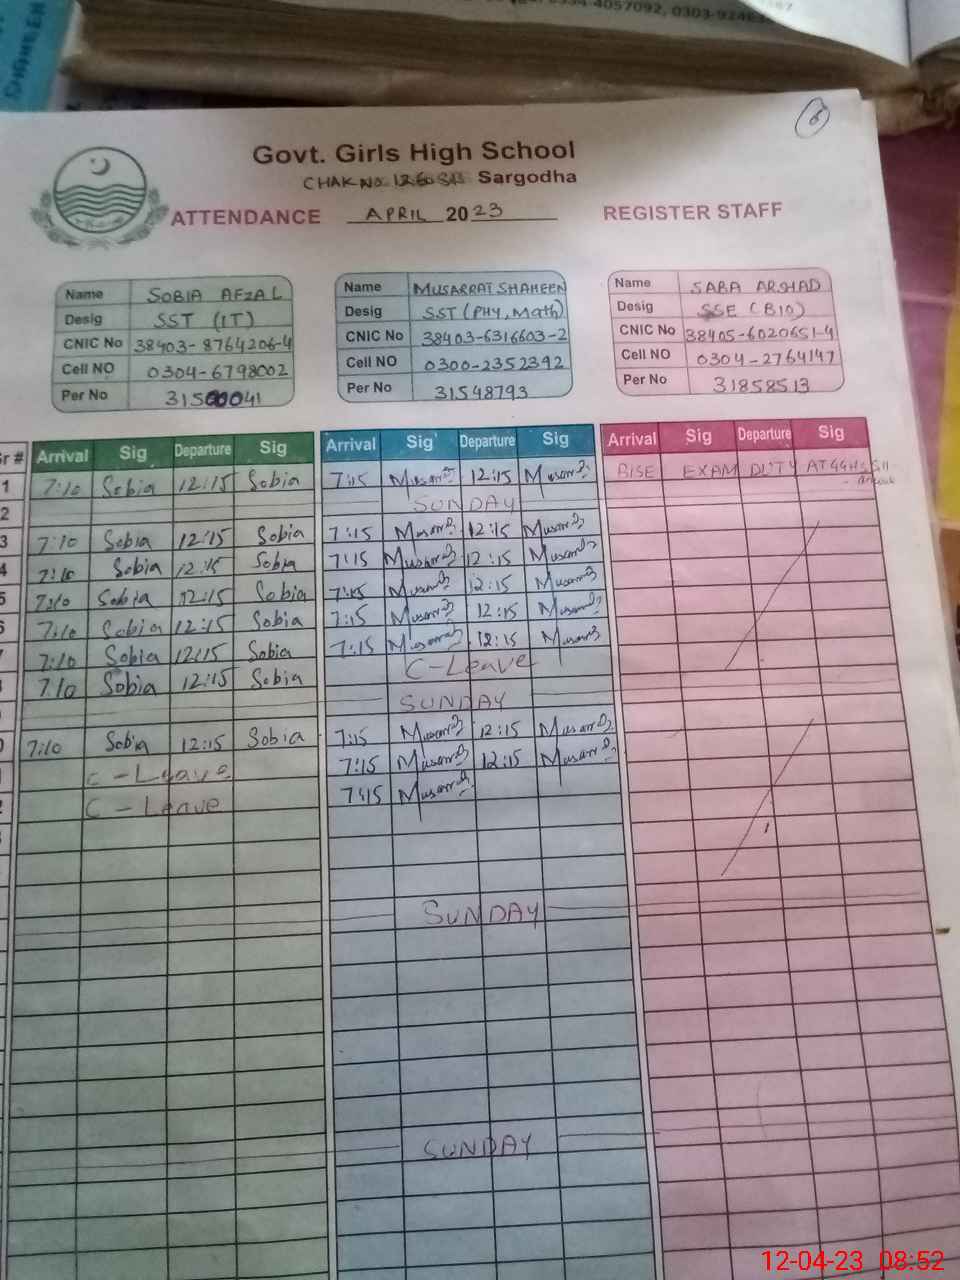 4057092, 0303-9246
6
Govt. Girls High School
CHAK NO. Sargodha
ATTENDANCE APRIL 2023 REGISTER STAFF
Name SOBIA AFZAL
Desig SST (IT)
CNIC No 38403-8764206-4
Cell NO 0304-6798002
Per No 31500041
Name MUSARRAT SHAHEEN
Desig SST (PHY, Math)
CNIC No 38403-6316603-2
Cell NO 0300-2352392
Per No 31548793
Name SABA ARSHAD
Desig SSE (BIO)
CNIC No 38405-6020651-4
Cell NO 0304-2764147
Per No 31858513
Sr # Arrival Sig Departure Sig Arrival Sig Departure Sig Arrival Sig Departure Sig
1 7:10 Sobia 12:15 Sobia 7:15 Musarrat 12:15 Musarrat BISE EXAM DUTY AT GGHS
2 SUNDAY
3 7:10 Sobia 12:15 Sobia 7:15 Musarrat 12:15 Musarrat
4 7:10 Sobia 12:15 Sobia 7:15 Musarrat 12:15 Musarrat
5 7:10 Sobia 12:15 Sobia 7:15 Musarrat 12:15 Musarrat
6 7:10 Sobia 12:15 Sobia 7:15 Musarrat 12:15 Musarrat
7:10 Sobia 12:15 Sobia 7:15 Musarrat 12:15 Musarrat
7:10 Sobia 12:15 Sobia C-Leave
SUNDAY
7:10 Sobia 12:15 Sobia 7:15 Musarrat 12:15 Musarrat
C-Leave 7:15 Musarrat 12:15 Musarrat
C-Leave 7:15 Musarrat
SUNDAY
SUNDAY
12-04-23 08:52